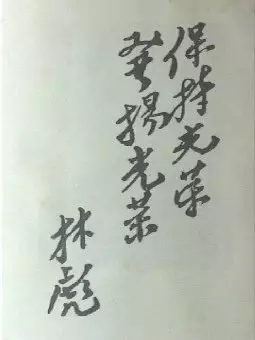 保持光荣
发扬光荣
林彪